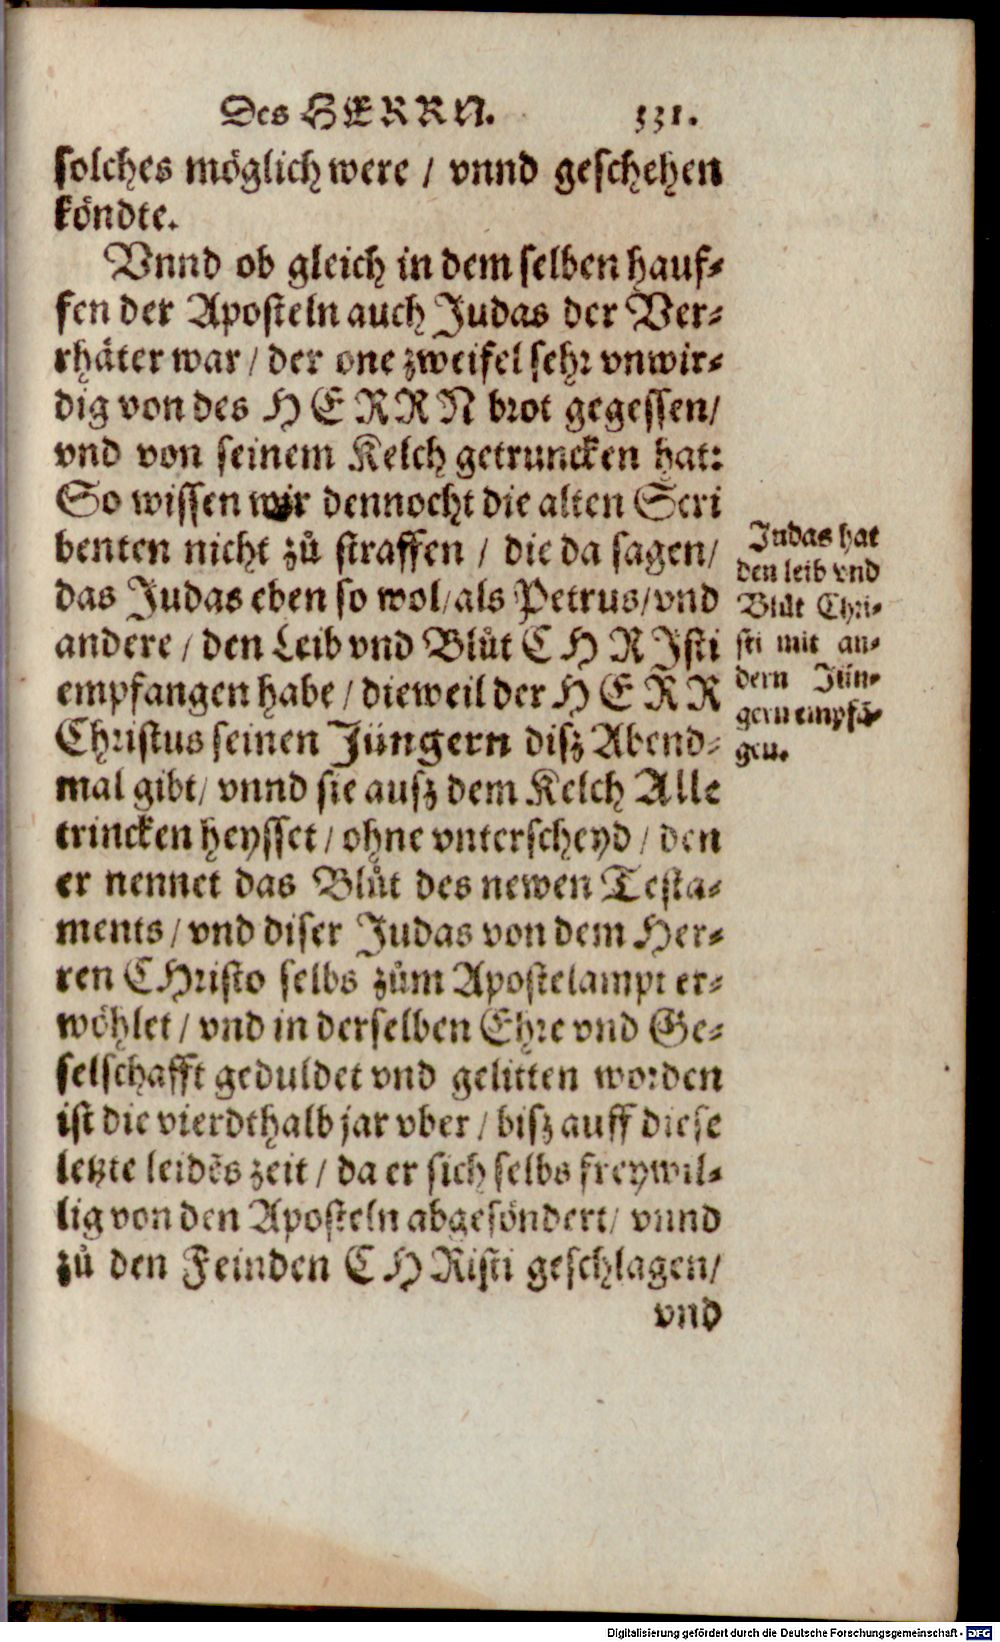 Des HERRN. 331.
solches möglich were / vnnd geschehen
köndte.
Vnnd ob gleich in dem selben hauf-
fen der Aposteln auch Judas der Ver-
rhäter war / der one zweifel sehr vnwir-
dig von des HERRN brot gegessen /
vnd von seinem Kelch getruncken hat:
So wissen wir dennocht die alten Scri
benten nicht zů straffen / die da sagen /
das Judas eben so wol / als Petrus / vnd
andere / den Leib vnd Blůt CHRJsti
empfangen habe / dieweil der HERR
Christus seinen Jüngern disz Abend-
mal gibt / vnnd sie ausz dem Kelch Alle
trincken heysset / ohne vnterscheyd / den
er nennet das Blůt des newen Testa-
ments / vnd diser Judas von dem Her-
ren CHristo selbs zům Apostelampt er-
wöhlet / vnd in derselben Ehre vnd Ge-
selschafft geduldet vnd gelitten worden
ist die vierdthalb jar vber / bisz auff diese
letzte leidēs zeit / da er sich selbs freywil-
lig von den Aposteln abgesöndert / vnnd
zů den Feinden CHRisti geschlagen /
vnd
Judas hat
den leib vnd
Blůt Chri-
sti mit an-
dern Jün-
gern empfā-
gen.
Digitalisierung gefördert durch die Deutsche Forschungsgemeinschaft - DFG